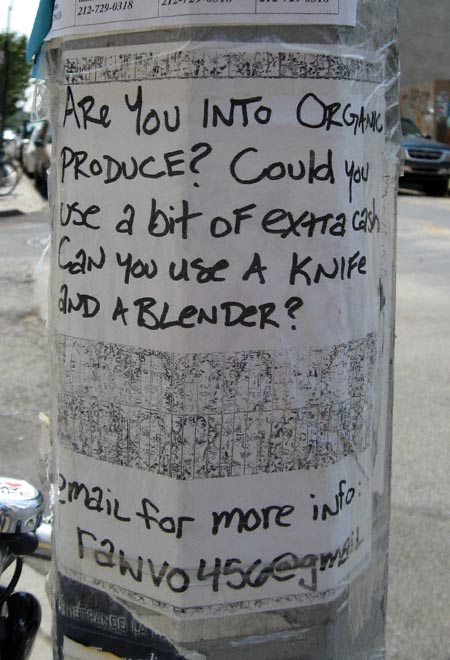 212-729-0318 212-729-0318 212-729-0318
ARe You INTO ORGANIC
PRODUCE? Could you
use a bit of extra cash
CAN you use A KNIFe
AND A BLeNDER?
email for more info:
rawvo456@gmail